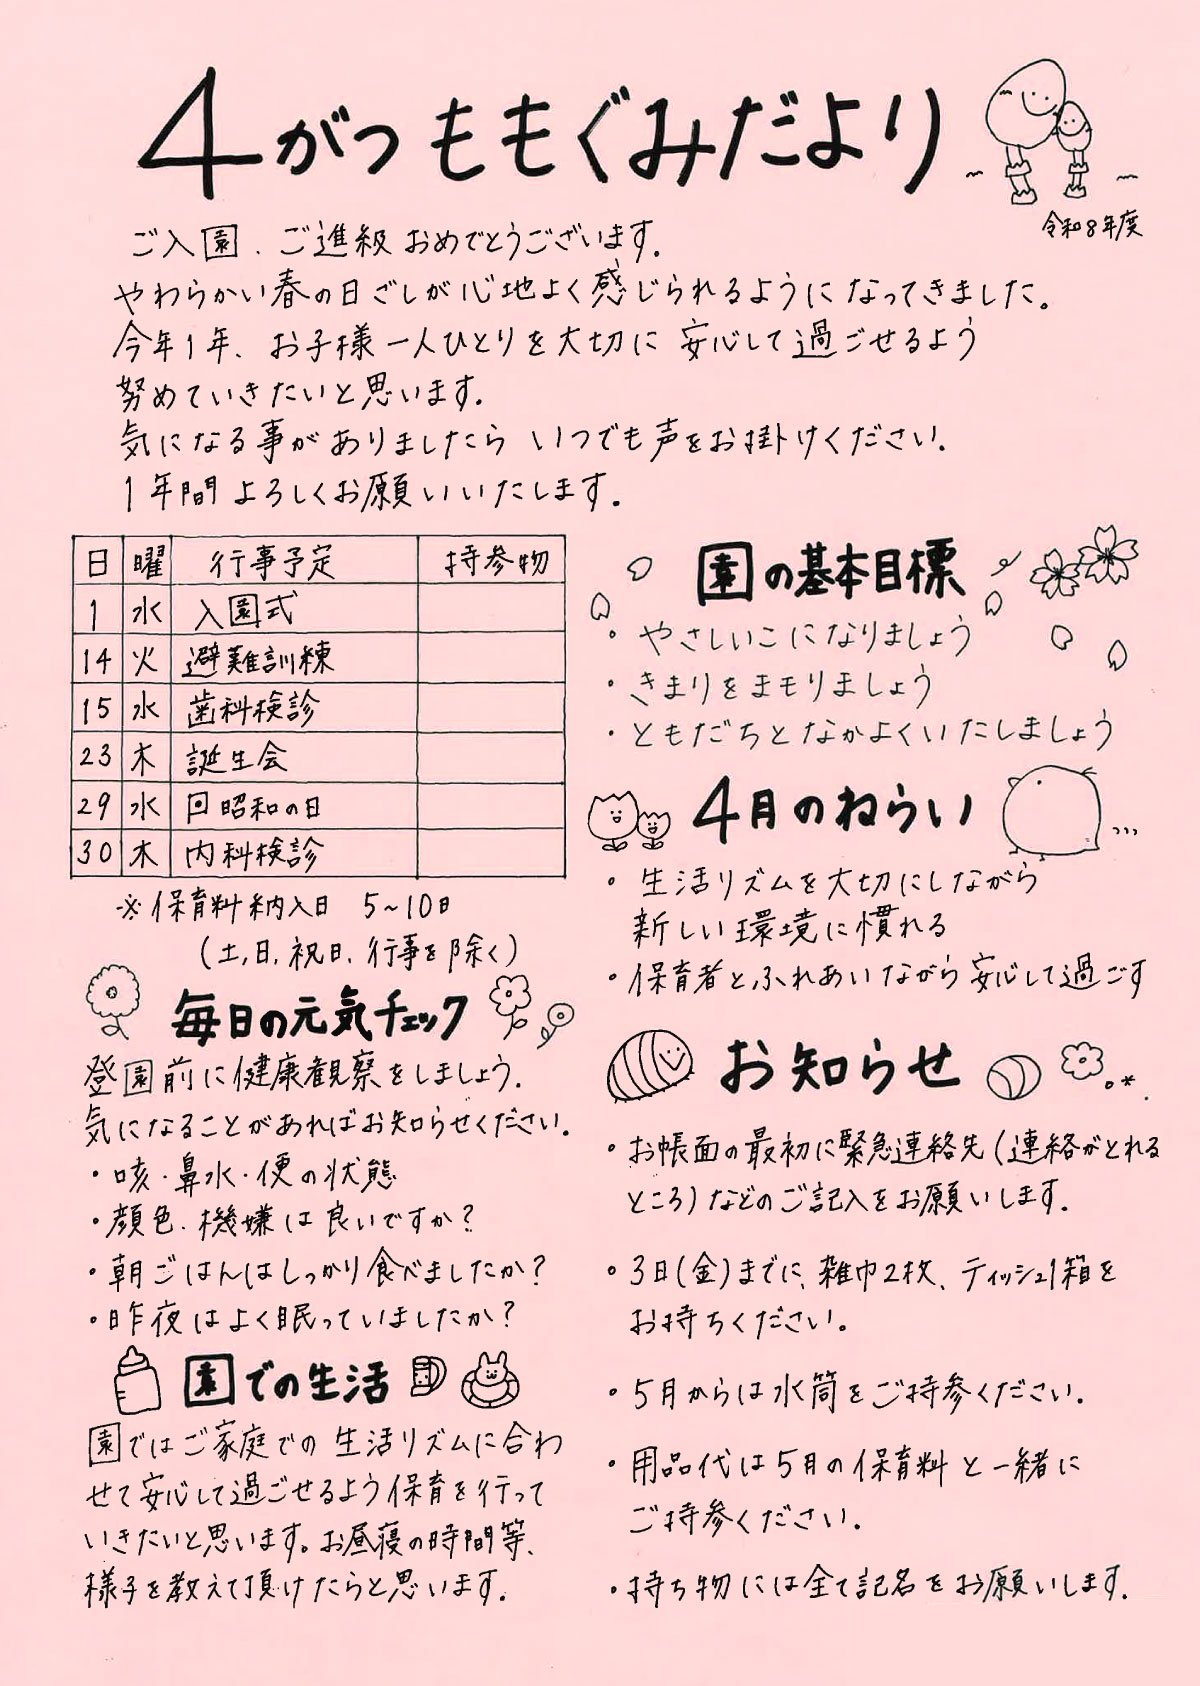 4がつ ももぐみだより
令和8年度
ご入園、ご進級おめでとうございます。
やわらかい春の日ざしが心地よく感じられるようになってきました。
今年1年、お子様一人ひとりを大切に安心して過ごせるよう
努めていきたいと思います。
気になる事がありましたらいつでも声をお掛けください。
1年間よろしくお願いいたします。
日 曜 行事予定 持参物
1 水 入園式
14 火 避難訓練
15 水 歯科検診
23 木 誕生会
29 水 回昭和の日
30 木 内科検診
※保育料納入日 5~10日
(土,日,祝日、行事を除く)
毎日の元気チェック
登園前に健康観察をしましょう。
気になることがあればお知らせください。
・咳・鼻水・便の状態
・顔色、機嫌は良いですか?
・朝ごはんはしっかり食べましたか?
・昨夜はよく眠っていましたか?
園での生活
園ではご家庭での生活リズムに合わ
せて安心して過ごせるよう保育を行って
いきたいと思います。お昼寝の時間等、
様子を教えて頂けたらと思います。
園の基本目標
・やさしいこになりましょう
・きまりをまもりましょう
・ともだちとなかよくいたしましょう
4月のねらい
・生活リズムを大切にしながら
新しい環境に慣れる
・保育者とふれあいながら安心して過ごす
お知らせ
・お帳面の最初に緊急連絡先(連絡がとれる
ところ)などのご記入をお願いします。
・3日(金)までに、雑巾2枚、ティッシュ1箱を
お持ちください。
・5月からは水筒をご持参ください。
・用品代は5月の保育料と一緒に
ご持参ください。
・持ち物には全て記名をお願いします。